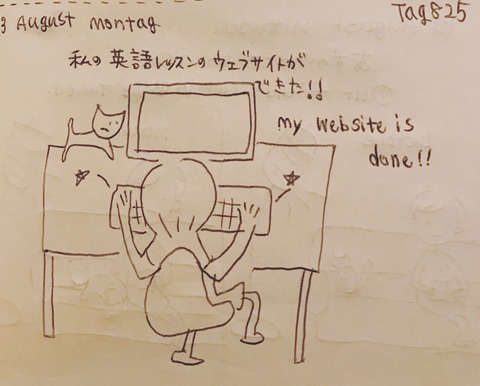 3 August montag
Tag 825
私の英語レッスンのウェブサイトが
できた!!
my website is
done!!